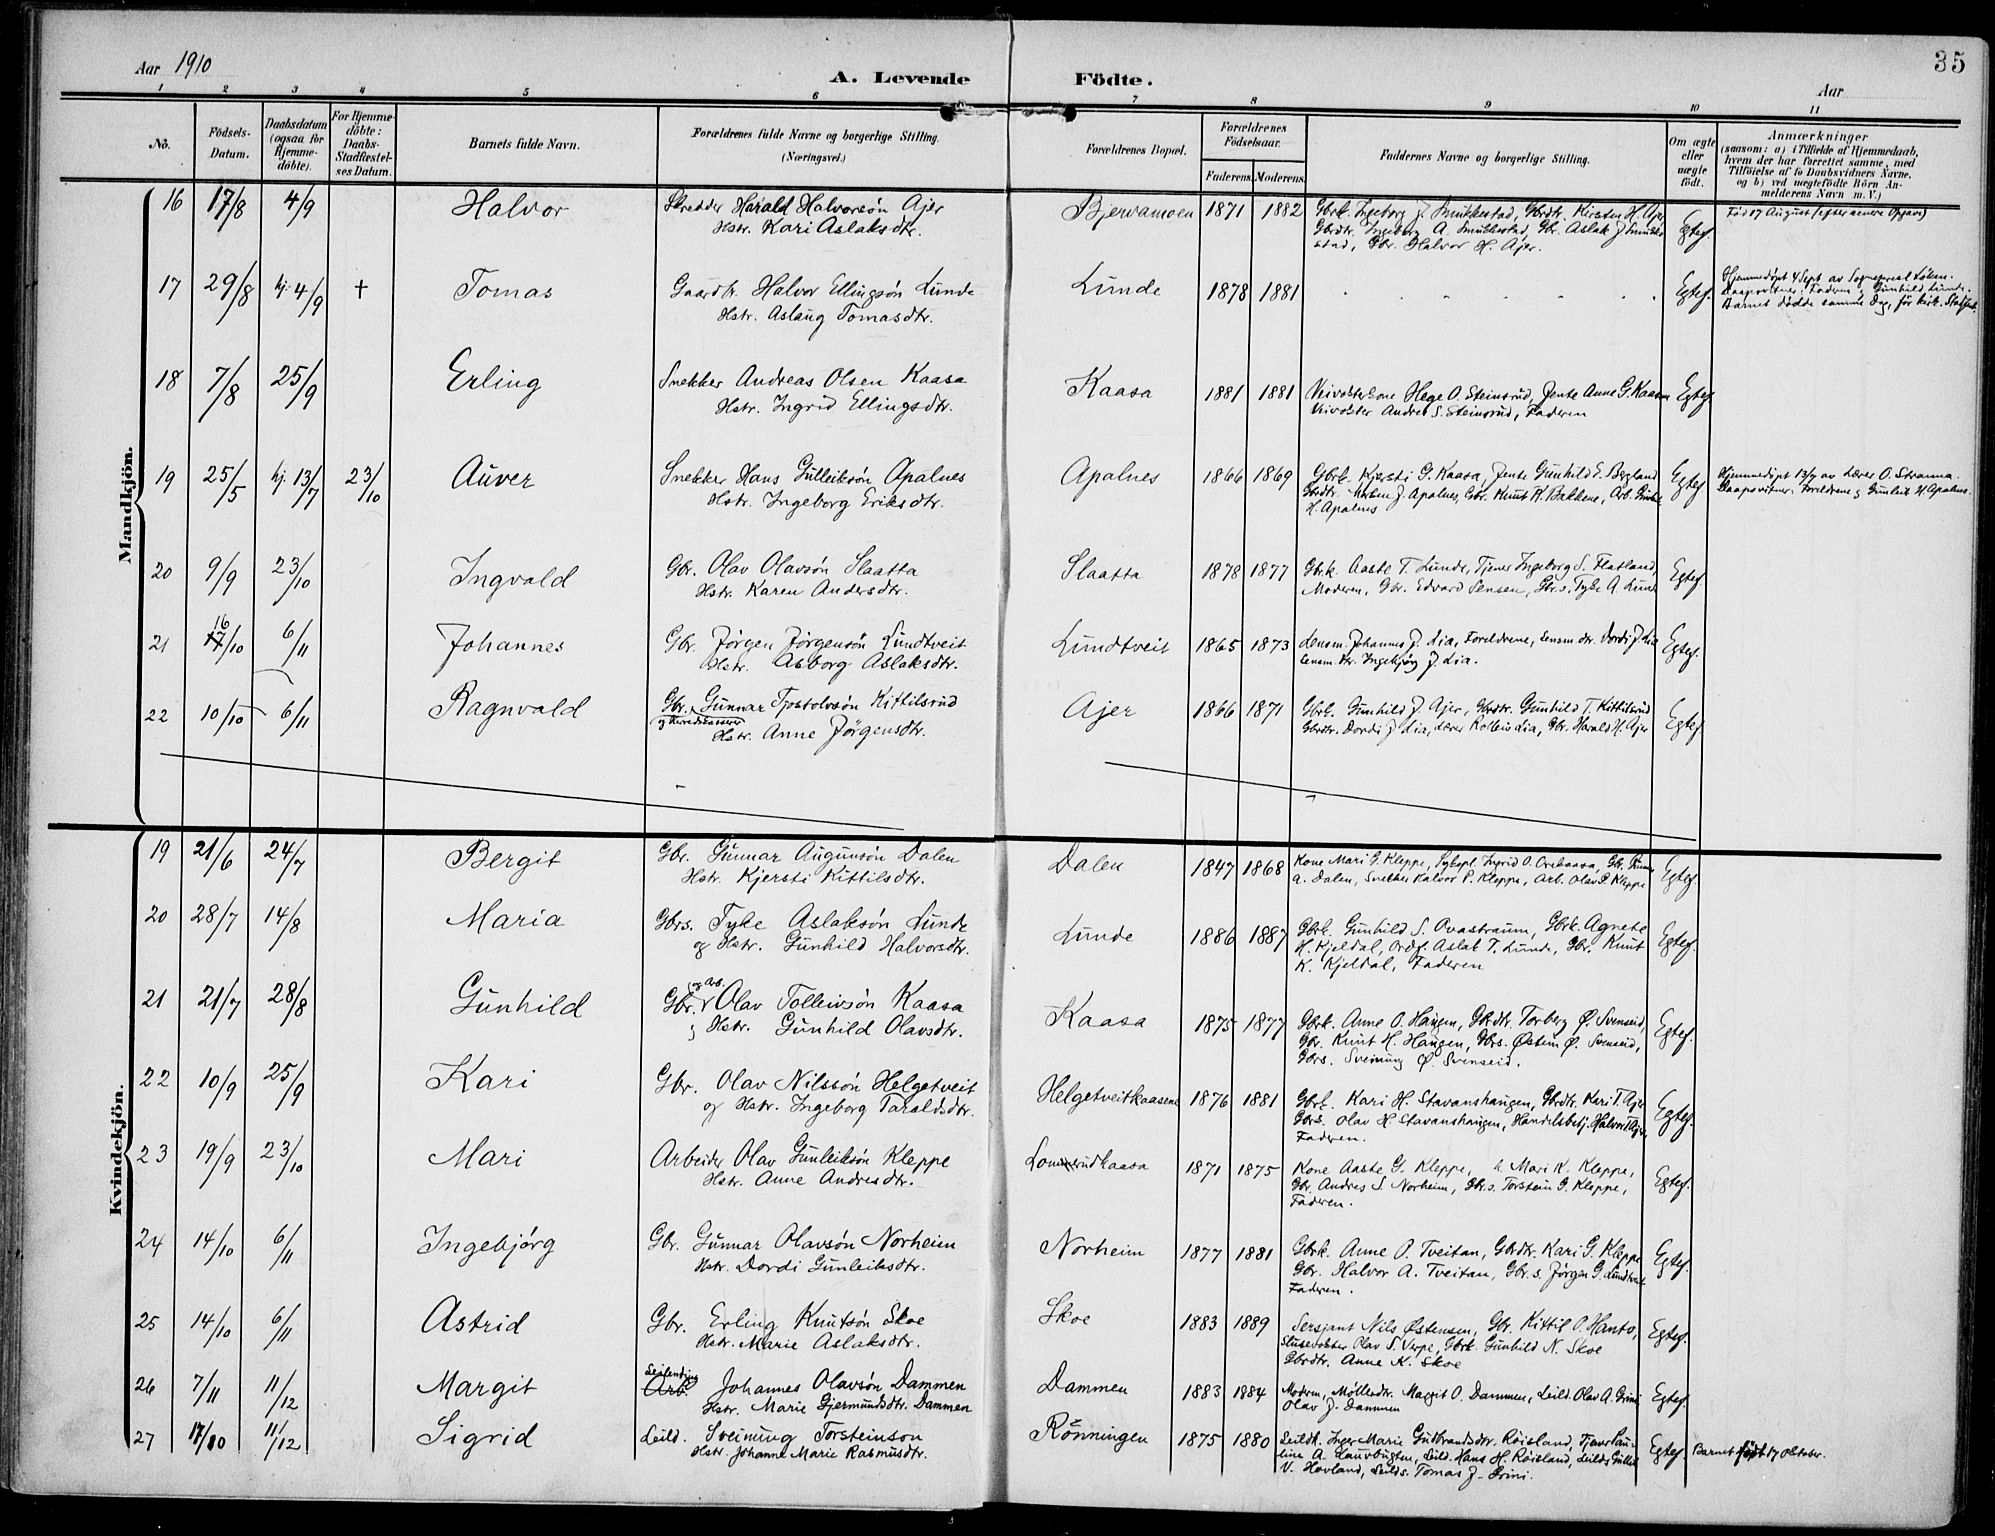 35
Aar 1910
A. Levende Födte.
Aar
1 2 3 4 5 6 7 8 9 10 11
No.
Födsels-
Datum.
Daabsdatum
(ogsaa for
Hjemme-
döbte).
For Hjemme-
döbte:
Daabs-
Stadfæstel-
ses Datum.
Barnets fulde Navn.
Forældrenes fulde Navne og borgerlige Stilling.
(Næringsvei.)
Forældrenes Bopæl.
Forældrenes
Födselsaar.
Faderens. Moderens.
Faddernes Navne og borgerlige Stilling.
Om ægte
eller
uægte
födt.
Anmærkninger
(saasom: a) i Tilfælde af Hjemmedaab,
hvem der har forrettet samme, med
Tilföielse af to Daabsvidners Navne.
og b) ved uægtefödte Börn An-
melderens Navn m. V.)
Mandkjön.
16 17/8 4/9 Halvor
Skredder Harald Halvorsön Ajer
Hstr. Kari Aslaksdtr.
Bjervamoen 1871 1882
Gbrk. Ingeborg J. Smukkestad, Gbrdtr. Kirsten H. Ajer
Gbrdtr. Ingeborg A. Smukkestad, Gbr. Aslak J. Smukke
stad, Gbr. Halvor H. Ajer.
Egtef.
Fød 17 August (efter senere Opgave)
17 29/8 hj. 4/9 + Tomas
Gaardbr. Halvor Ellingsøn Lunde
Hstr. Aslaug Tomasdtr.
Lunde 1878 1881
Egtef.
Hjemmedøpt 4 Sept. av Sogneprest Løken.
Daapsvitner: Faderen og Gunhild Lunde.
Barnet dødde samme Dag, før kirk. Stadf.
18 7/8 25/9 Erling
Snekker Andreas Olsen Kaasa
Hstr. Ingrid Ellingsdtr.
Kaasa 1881 1881
Veivokterkone Hege O. Steinsrud, Jente Anne G. Kaasen
Veivokter Andres S. Steinsrud, Faderen
Egtef.
19 25/5 hj. 13/7 23/10 Auver
Snekker Hans Gulleiksön Apalnes
Hstr. Ingeborg Eriksdtr.
Apalnes 1866 1869
Gbrk. Kjersti G. Kaasa, Jente Gunhild E. Bergland
Gbrdtr. J. Apalnes, Gbr. Knut K. Bakkene, Arb.
H. Apalnes
Egtef.
Hjemmedøpt 13/7 av Lærer O. Stranna.
Daapsvitner: Foreldrene og Gunleik H. Apalnes.
20 9/9 23/10 Ingvald
Gbr. Olav Olavsön Slaatta
Hstr. Karen Andersdtr.
Slaatta 1878 1877
Gbrk. Aaste T. Lunde, Tjener Ingeborg S. Flatland,
Moderen, Gbr. Edvard Jensen, Gbrs. Tyke A. Lunde
Egtef.
21 16/10 6/11 Johannes
Gbr. Jørgen Jørgensøn Lundtveit
Hstr. Asborg Aslaksdtr.
Lundtveit 1865 1873
Lensm. Johannes J. Lia, Foreldrene, Lensm. dtr. Dordi J. Lia
Lensm. dtr. Ingebjørg J. Lia.
Egtef.
22 10/10 6/11 Ragnvald
Gbr. Gunnar Tjostolvsön Kittilsrud
og Herredskasserer
Hstr. Anne Jörgensdtr.
Ajer 1866 1871
Gbrk. Gunhild J. Ajer, Gbrdtr. Gunhild T. Kittilsrud
Gbrdtr. Dordi J. Lia, Lærer Rolleiv Lia, Gbr. Harald H. Ajer
Egtef.
Kvindekjön.
19 21/6 24/7 Bergit
Gbr. Gunnar Augunsön Dalen
Hstr. Kjersti Kittilsdtr.
Dalen 1847 1868
Kone Mari G. Kleppe, Sykepl. Ingrid O. Orekaasa, Gbr. Gunnar
A. Dalen, Snekker Halvor P. Kleppe, Arb. Olav P. Kleppe
Egtef.
20 28/7 14/8 Maria
Gbrs. Tyke Aslaksön Lunde
og Hstr. Gunhild Halvorsdtr.
Lunde 1886 1887
Gbrk. Gunhild S. Ovastraum, Gbrk. Agnete
H. Kjeldal, Ordf. Aslak T. Lunde, Gbr. Knut
K. Kjeldal, Faderen
Egtef.
21 21/7 28/8 Gunhild
og Arb.
Gbr. Olav Tolleivsön Kaasa
og Hstr. Gunhild Olavsdtr.
Kaasa 1875 1877
Gbrk. Anne O. Haugen, Gbrdtr. Torberg Ø. Svenseid,
Gbr. Knut H. Haugen, Gbrs. Østein Ø. Svenseid,
Gbrs. Sveinung Ø. Svenseid.
Egtef.
22 10/9 25/9 Kari
Gbr. Olav Nilssön Helgetveit
og Hstr. Ingeborg Taraldsdtr.
Helgetveitkaasene 1876 1881
Gbrk. Kari H. Stavanshaugen, Gbrdtr. Kari T. Ajer
Gbrs. Olav H. Stavanshaugen, Handelsbetj. Halvor T. Ajer,
Faderen.
Egtef.
23 19/9 23/10 Mari
Arbeider Olav Gunleiksön Kleppe
Hstr. Anne Andresdtr.
1871 1875
Kone Aaste G. Kleppe, Mari K. Kleppe,
Gbr. Andres S. Norheim, Gbr.s. Torstein G. Kleppe,
Faderen.
Egtef.
24 14/10 6/11 Ingebjørg
Gbr. Gunnar Olavsön Norheim
Hstr. Dordi Gunleiksdtr.
Norheim 1877 1881
Gbrk. Anne O. Tveitan, Gbrdtr. Kari G. Kleppe
Gbr. Halvor A. Tveitan, Gbr.s. Jørgen G. Lundtveit
Faderen.
Egtef.
25 14/10 6/11 Astrid
Gbr. Erling Knutsön Skoe
Hstr. Marie Aslaksdtr.
Skoe 1883 1889
Sersjant Nils Østensen, Gbr. Kittil O. Hanto,
Slusevokter Olav S. Verpe, Gbrk. Gunhild N. Skoe
Gbrdtr. Anne K. Skoe
Egtef.
26 7/11 11/12 Margit
Leilending
Arb. Johannes Olavsön Dammen
Hstr. Marie Gjermundsdtr. Dammen
Dammen 1883 1884
Modren, Møllerdtr. Margit O. Dammen, Leild. Olav A. Grini
Olav J. Dammen
Egtef.
27 17/10 11/12 Sigrid
Leild. Sveinung Torsteinson
Hstr. Johanne Marie Rasmusdtr.
Rönningen 1875 1880
Leildk. Inger Marie Gulbrandsdtr. Røisland, Tjener Pau-
line A. Laurbugten, Leild. Hans H. Røisland, Leilds.
V. Hovland, Leilds. Tomas J. Grini.
Egtef.
Barnet født 17 Oktober.